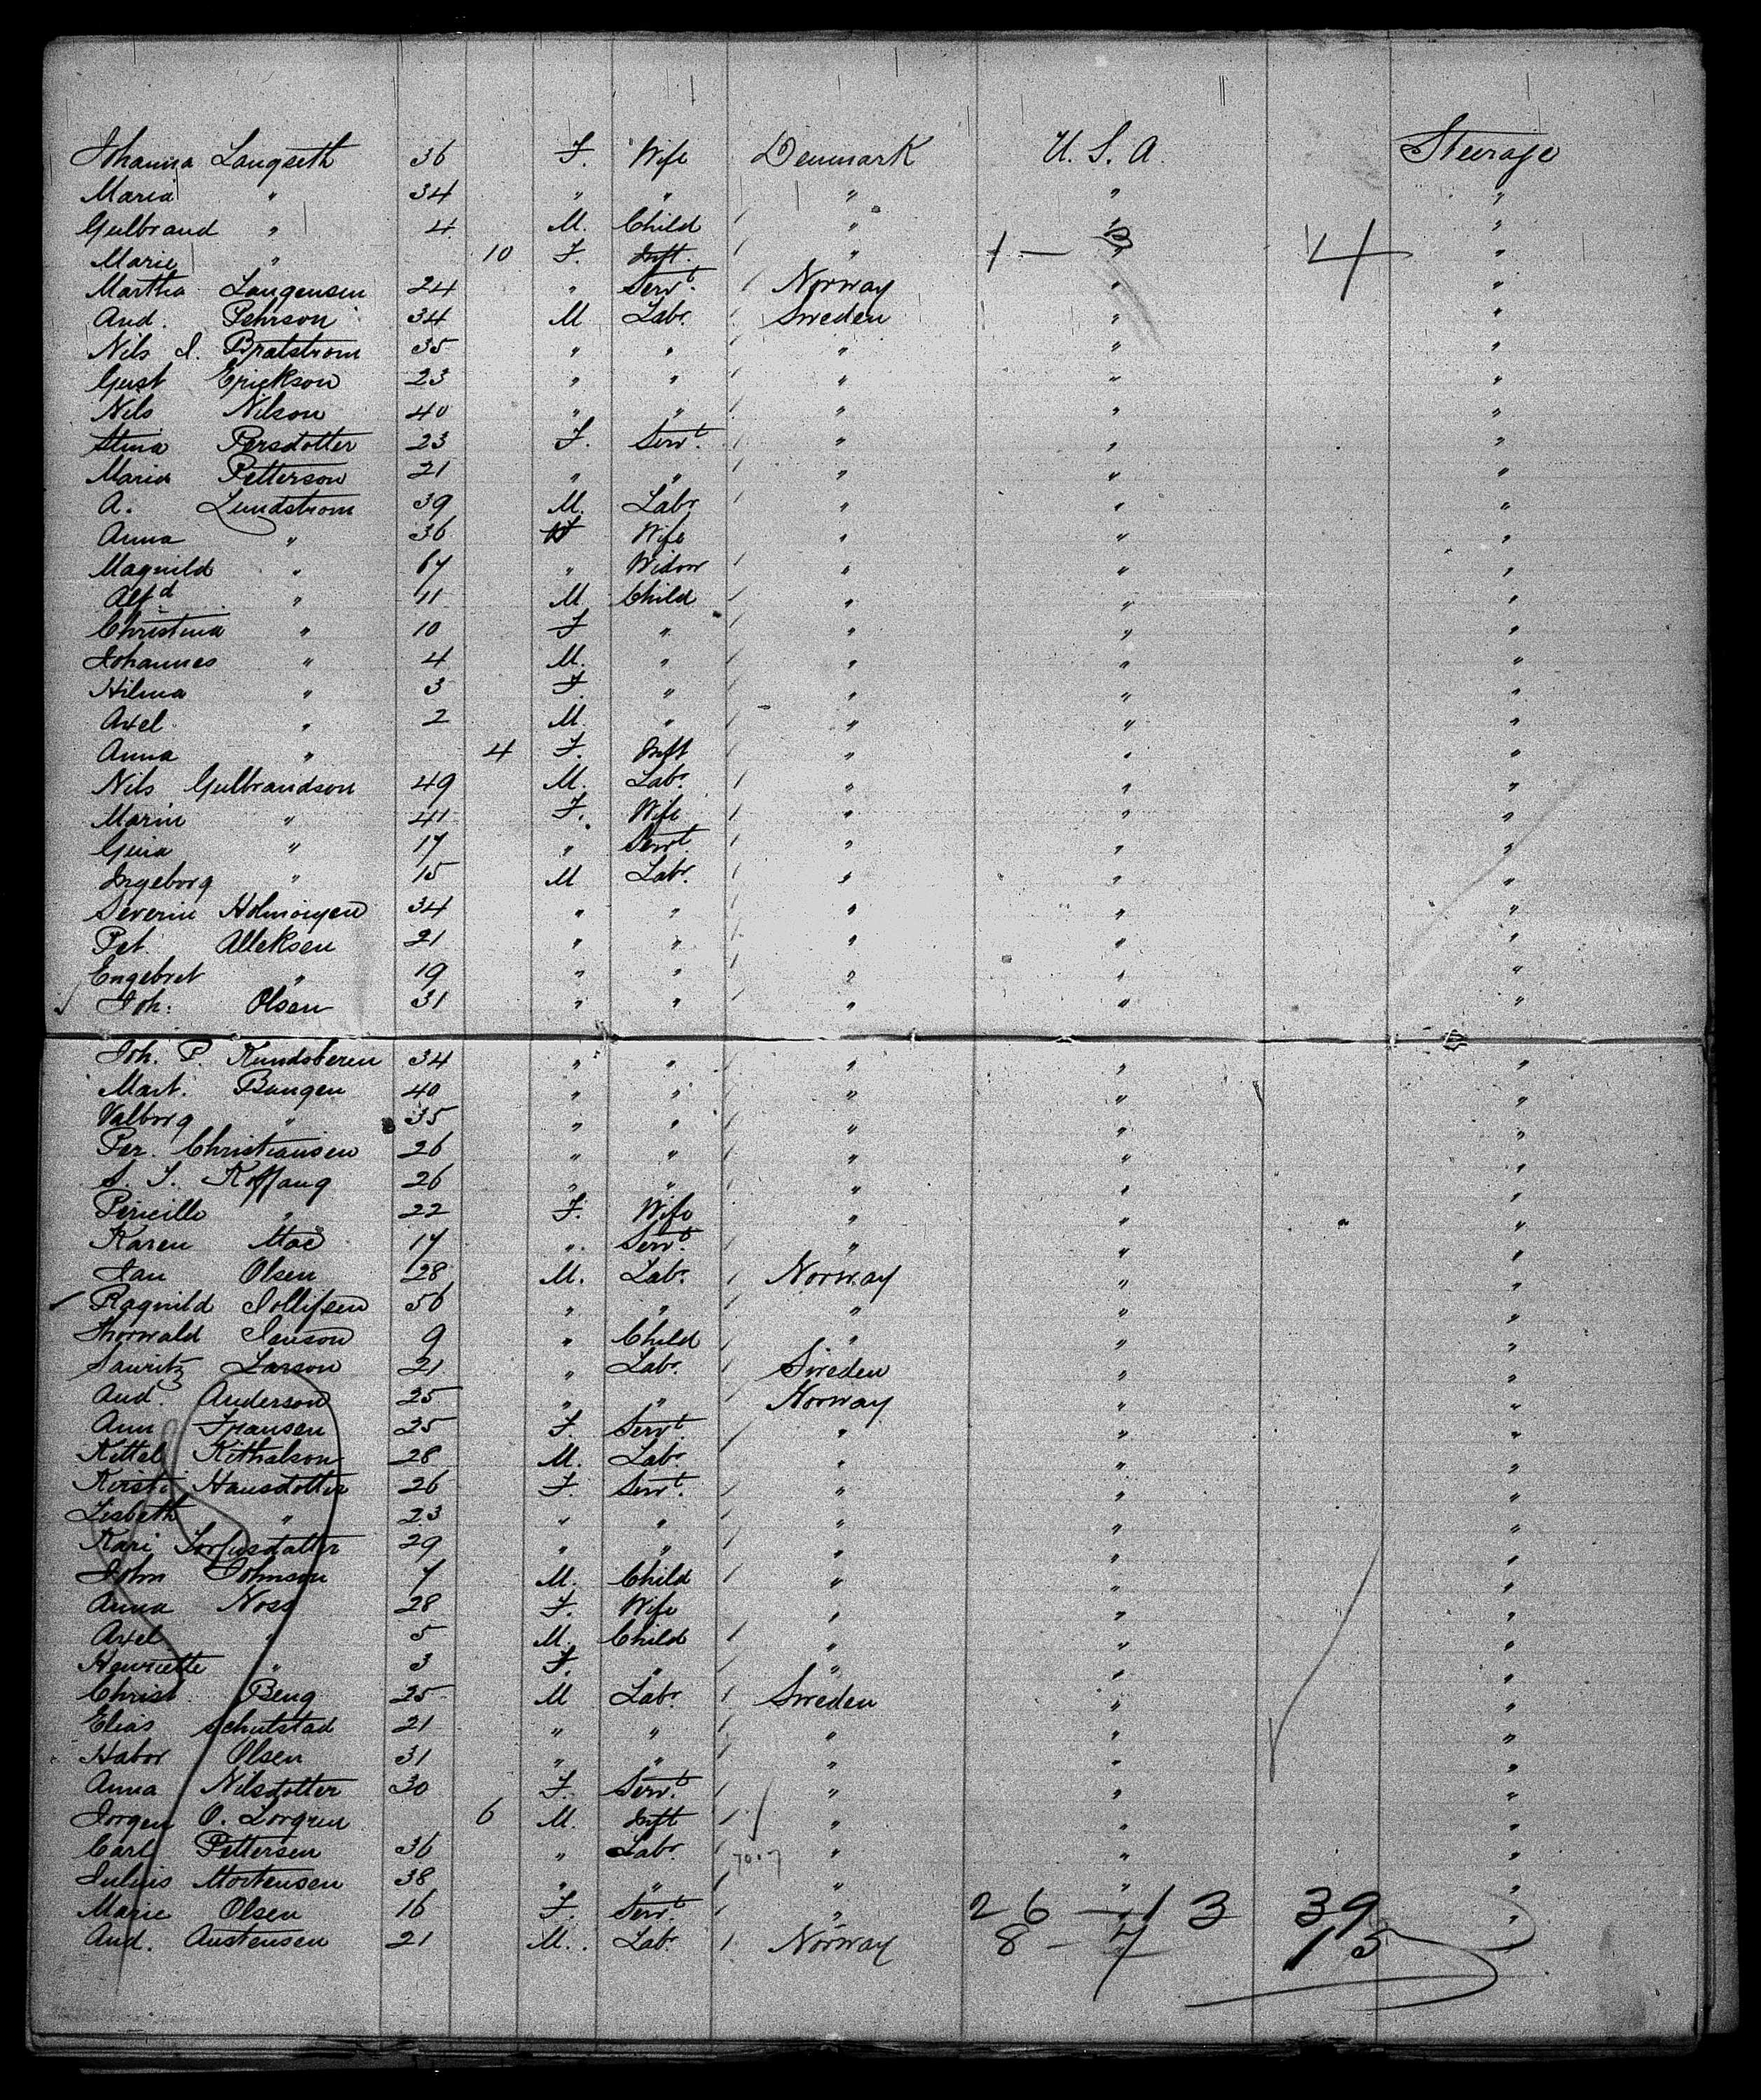 Johanna Langseth 36 F. Wife Denmark U.S.A. Steerage
Maria " 34 " " " " "
Gulbrand " 4 M. Child " " "
Marie " 10 F. Inft. " 1 — 3 " 4 "
Martha Langensen 24 " Servt. Norway " "
And. Pehrson 34 M Labr. Sweden " "
Nils I. Bratstrom 35 " " " " "
Gust Erickson 23 " " " " "
Nils Nilson 40 " " " " "
Stina Persdotter 23 F. Servt. " " "
Maria Petterson 21 " " " " "
A. Lundstrom 39 M. Labr " " "
Anna " 36 F Wife " " "
Magnild " 67 " Widow " " "
Alfd " 11 M Child " " "
Christina " 10 F " " " "
Johannes " 4 M. " " " "
Hilma " 3 F. " " " "
Axel " 2 M. " " " "
Anna " 4 F. Inft " " "
Nils Gulbrandson 49 M. Labr. " " "
Marin " 41 F. Wife " " "
Gina " 17 " Servt. " " "
Ingeborg " 15 M Labr. " " "
Severin 34 " " " " "
Pet. Alleksen 21 " " " " "
Engebret " 19 " " " " "
Joh: Olsen 31 " " " " "
Joh. P. Kundsberen 34 " " " " "
Mart. Bangen 40 " " " " "
Valborg " 35 " " " " "
Per. Christiansen 26 " " " " "
S. J. Koffang 26 " " " " "
Pericille " 22 F. Wife " " "
Karen Moe 17 " Servt. " " "
Jan Olsen 28 M. Labr. Norway " "
Ragnild Tollifsen 56 " " " " "
Thorwald Jenson 9 " Child " " "
Lauritz Larson 21 " Labr. Sweden " "
And. Anderson 25 " " Norway " "
Ann Fransen 25 F. Servt. " " "
Kittel Kithalson 28 M. Labr. " " "
Kersti Hansdotter 26 F. Servt. " " "
Lisbeth " 23 " " " " "
Kari 29 " " " " "
John Johnson 7 M. Child " " "
Anna Noss 28 F. Wife " " "
Axel " 5 M. Child " " "
Henriette " 3 F. " " " "
Christ. Beng 25 M Labr. Sweden " "
Elias Schulstad 21 " " " " "
Habor Olsen 31 " " " " "
Anna Nilsdotter 30 F. Servt. " " "
Jorgen O. Lorgren 6 M. Inft " " "
Carl Pettersen 36 " Labr. " " "
Julius Mortensen 38 " " " " "
Marie Olsen 16 F. Servt. " 26 — 13 39 "
And. Austensen 21 M. Labr. Norway 8 — 7 15